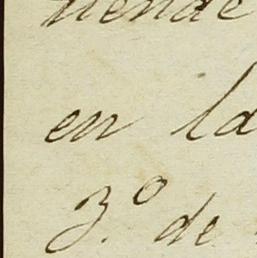 tiende
en la
3.º de